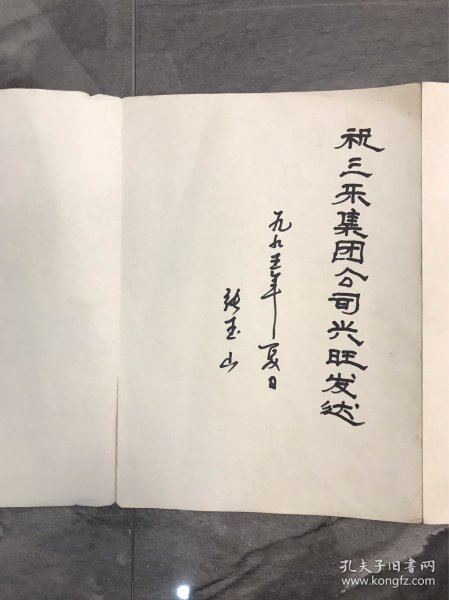 祝三乐集团公司兴旺发达
九九五年夏日
张玉山
孔夫子旧书网
www.kongfz.com